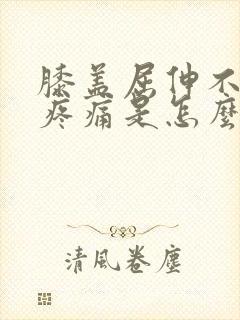 膝盖屈伸不
疼痛是怎麼
清風卷塵